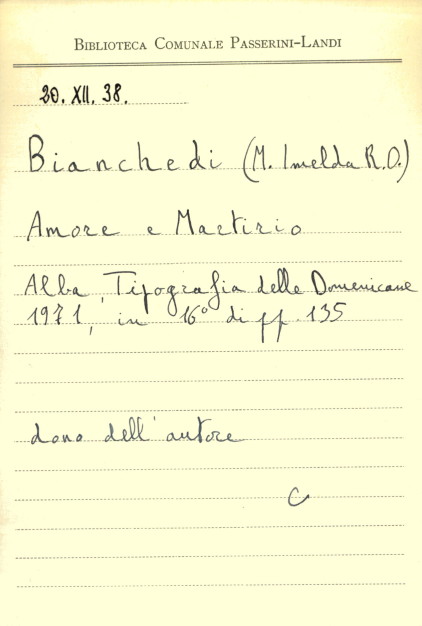 BIBLIOTECA COMUNALE PASSERINI-LANDI
20. XII. 38.
Bianchedi (M. Imelda R.O.)
Amore e Martirio
Alba, Tipografia delle Domenicane
1971, in 16° di pp. 135
dono dell'autore
C